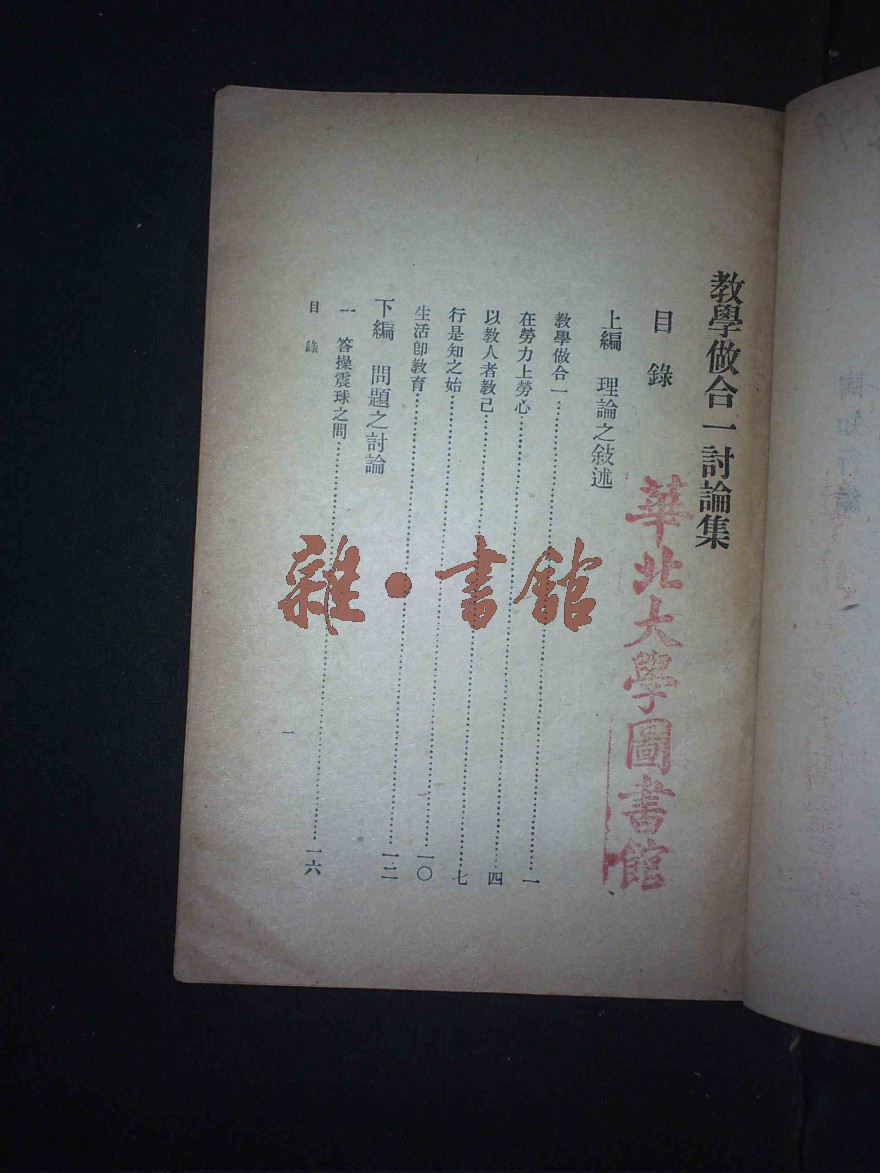 教學做合一討論集
目錄
上編 理論之敍述
教學做合一……一
在勞力上勞心……四
以教人者教己……七
行是知之始……一〇
生活卽教育……一二
下編 問題之討論
一 答操震球之問……一六
目錄
一
華北大學圖書館
雜·書館